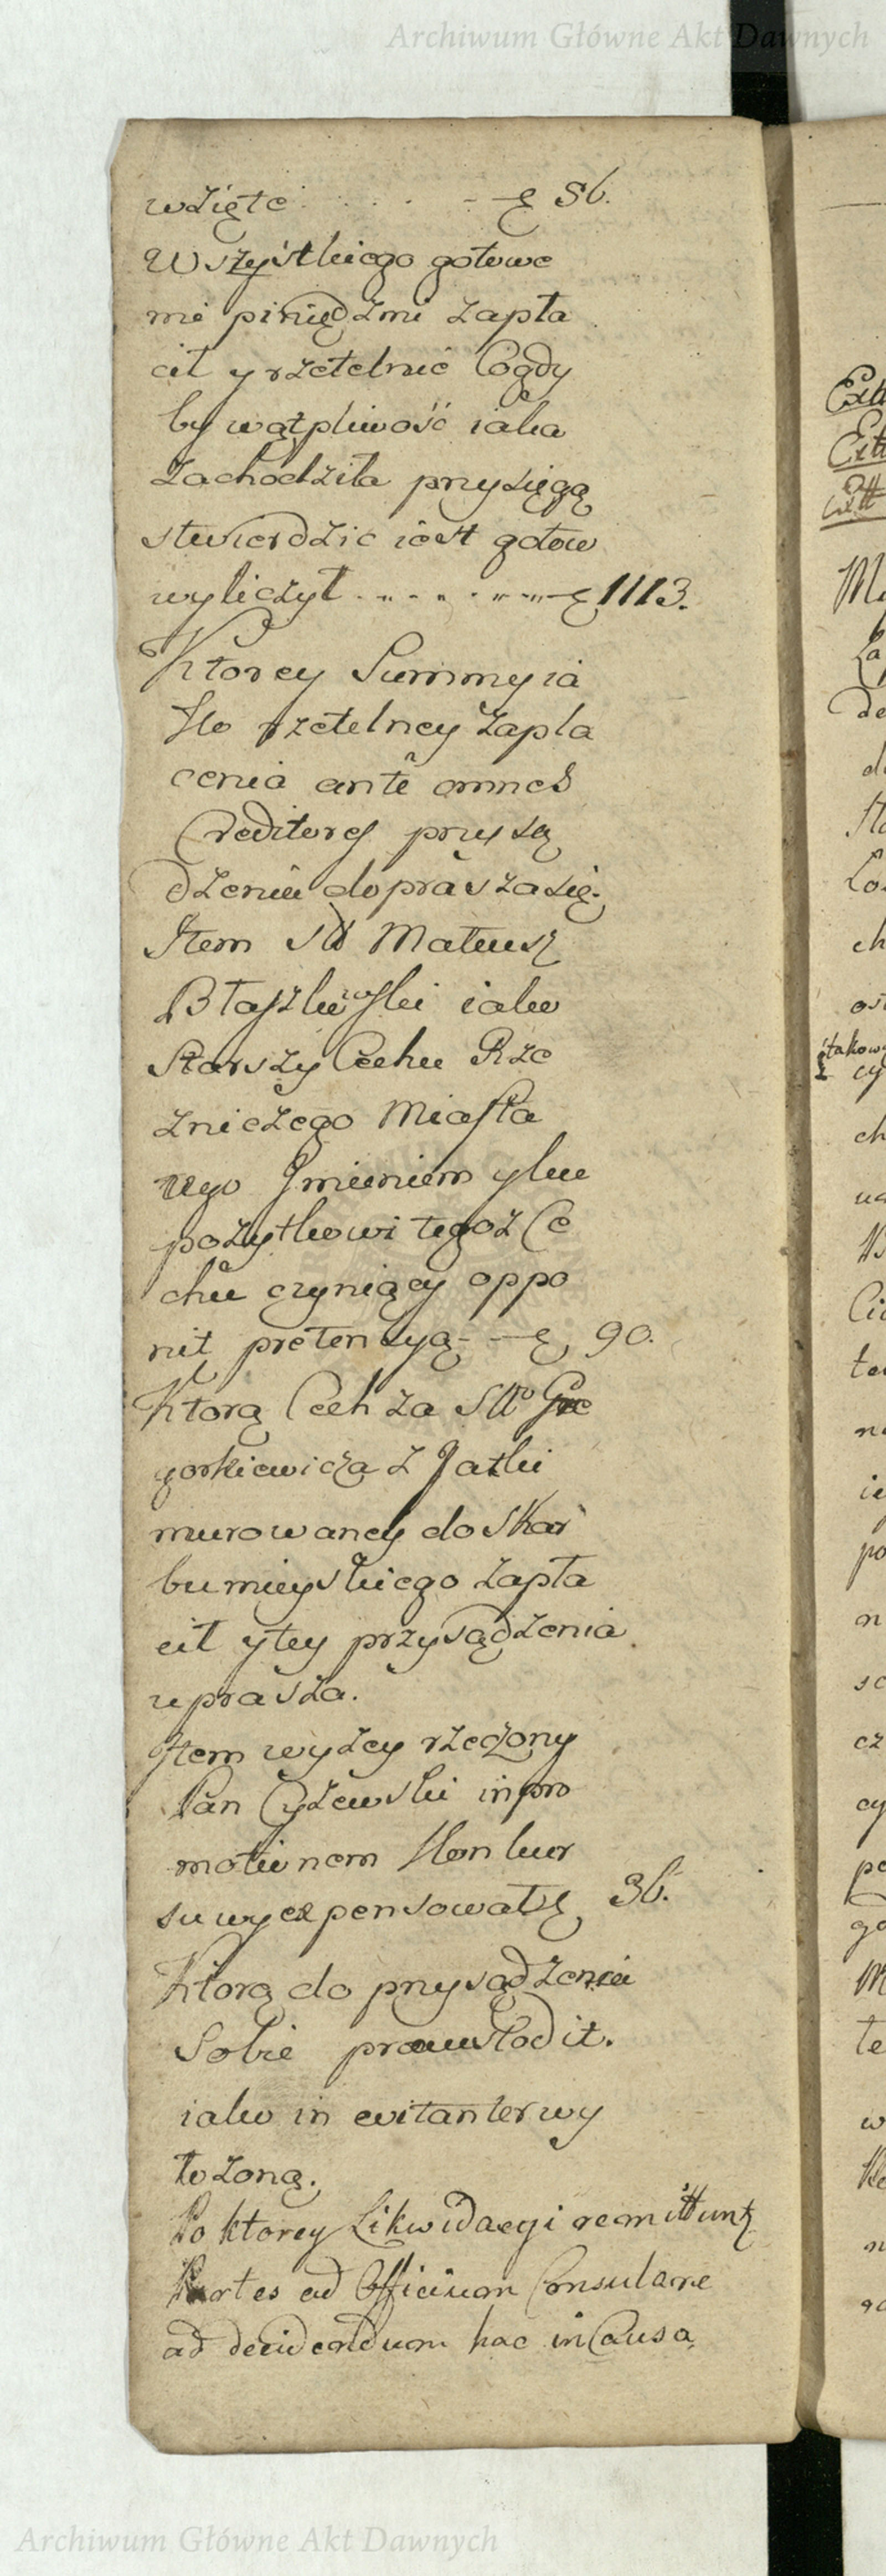 Archiwum Główne Akt Dawnych
wzięte . . . . - — 56.
Wszystkiego gotowe
mi piniędzmi zapła
cił y rzetelnie Cogdy
by wątpliwość iaka
zachodziła przysięgą
stwierdzic iest gotow
wyliczył . . . . . . — 1113.
Ktorey Summy ia
ko rzetelney zapla
cenia ante omnes
Creditores przysą
dzenia doprasza się.
Item Mateusz
Błaszkowski iako
Starszy Cechu Rze
zniczego Miasta
tego Jmieniem y ku
pozytkowi tegoz Ce
chu czyniący oppo
nit pretensyą - — 90.
Ktorą Cech za Gre
gorkiewicza z Jatki
murowaney do Skar
bu mieyskiego zapła
cił y tey przysądzenia
uprasza.
Item wyzey rzeczony
Pan Cyzewski in pro
motionem Konkur
su wyexpensował 36.
Ktorą do przysądzenia
Sobie
iako in evitanter wy
łozoną.
Po ktorey Likwidacyi remittunt
Partes ad Officium Consulare
ad decidendum hac in Causa
Archiwum Główne Akt Dawnych